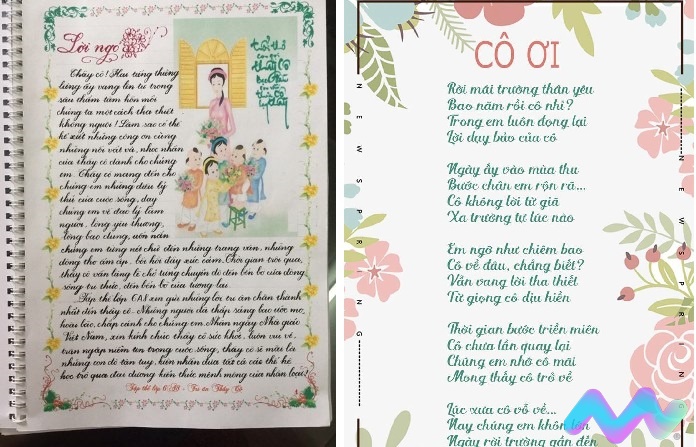 Lời ngỏ
Thầy cô! Hai tiếng thiêng
liêng ấy vang lên từ trong
sâu thẳm tâm hồn mỗi
chúng ta một cách tha thiết
không nguôi! Làm sao có thể
kể xiết những công ơn cùng
những nỗi vất vả, nhọc nhằn
của thầy cô dành cho chúng
em. Thầy cô mang đến cho
chúng em những điều lý
thú của cuộc sống, dạy
chúng em về đạo lý làm
người, lòng yêu thương,
lòng bao dung, uốn nắn
chúng em từng nét chữ đến những trang văn, những
dòng thơ ấm áp, bồi hồi đầy xúc cảm. Thời gian trôi qua,
thầy cô vẫn lặng lẽ chở từng chuyến đò đến bến bờ của dòng
sông tri thức, đến bến bờ của tương lai.
Tập thể lớp 6A8 xin gửi những lời tri ân chân thành
nhất đến thầy cô. Những người đã thắp sáng bao ước mơ,
hoài bão, chắp cánh cho chúng em. Nhân ngày Nhà giáo
Việt Nam, xin kính chúc thầy cô sức khỏe, luôn vui vẻ,
tràn ngập niềm tin trong cuộc sống, thầy cô sẽ mãi là
những con đò tận tụy, luôn nhân đưa tất cả các thế hệ
học trò qua đại dương kiến thức mênh mông của nhân loại!
Tập thể lớp 6A8 - Tri ân Thầy Cô
CÔ ƠI
Rời mái trường thân yêu
Bao năm rồi cô nhỉ?
Trong em luôn đọng lại
Lời dạy bảo của cô
Ngày ấy vào mùa thu
Bước chân em rộn rã...
Cô không lời từ giã
Xa trường tự lúc nào
Em ngỡ như chiêm bao
Cô về đâu, chẳng biết?
Vẫn vang lời tha thiết
Từ giọng cô dịu hiền
Thời gian bước triền miên
Cô chưa lần quay lại
Chúng em nhớ cô mãi
Mong thấy cô trở về
Lúc xưa cô vỗ về...
Nay chúng em khôn lớn
Ngày rời trường gần đến
NEW SPRING
NEW SPRING